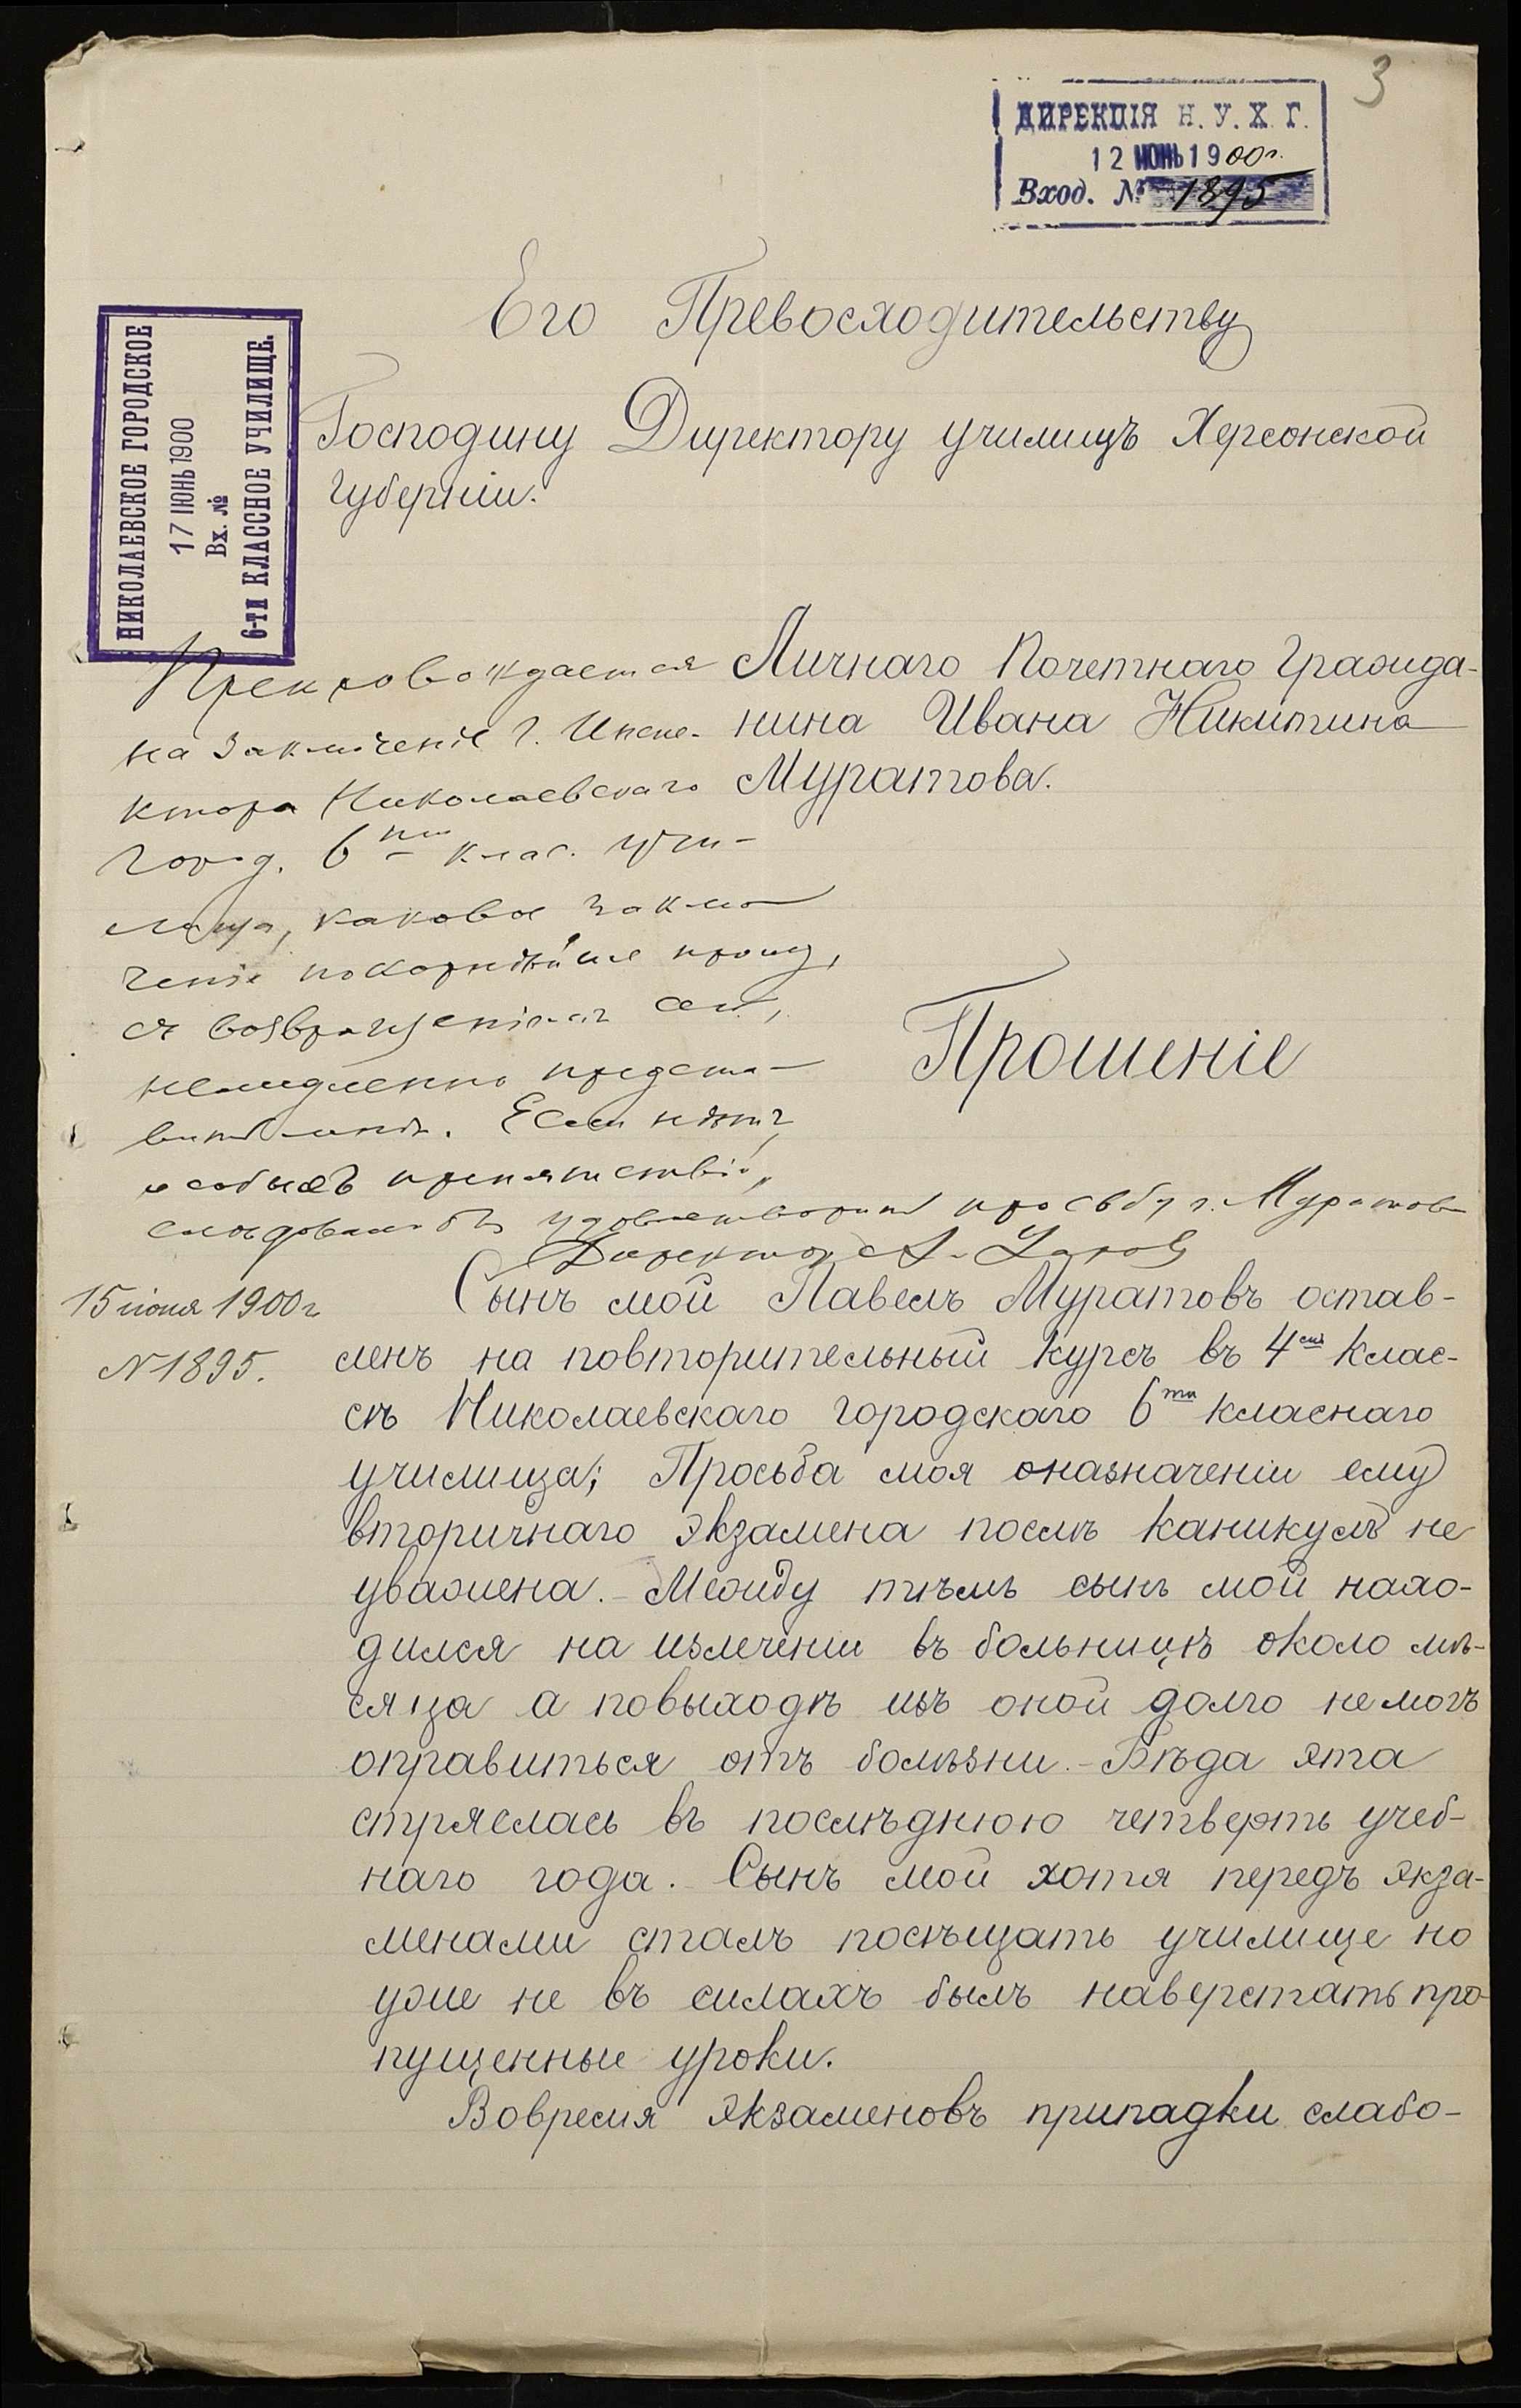 3
ДИРЕКЦІЯ Н. У. Х. Г.
12 ІЮНЬ 1900 г.
Вход. № 1895
Его Превосходительству
Господину Директору училищъ Херсонской
Губерніи.
НИКОЛАЕВСКОЕ ГОРОДСКОЕ
17 ІЮНЬ 1900
Вх. №
6-ти КЛАССНОЕ УЧИЛИЩЕ.
Личнаго Почетнаго Гражда-
нина Ивана Никитина
Муратова.
Препровождается
на заключеніе г. Инспе-
ктора Николаевскаго
город. 6ти клас. учи-
лища, каковое заклю
ченіе покорнѣйше прошу,
съ возвращеніемъ сего,
немедленно предста-
вить мнѣ. Если нѣтъ
особыхъ препятствій,
слѣдовало бъ удовлетворить просьбу г. Муратова
Директоръ А.
15 іюня 1900 г
№ 1895.
Прошеніе
Сынъ мой Павелъ Муратовъ остав-
ленъ на повторительный курсъ въ 4омъ клас-
сѣ Николаевскаго городскаго 6ти класнаго
училища; Просьба моя оназначеніи ему
вторичнаго экзамена послѣ каникулъ не
уважена. - Между тѣмъ сынъ мой нахо-
дился на излеченіи въ больницѣ около мѣ-
сяца а повыходѣ изъ оной долго немогъ
оправиться отъ болѣзни. - Бѣда эта
стряслась въ послѣднюю четверть учеб-
наго года. Сынъ мой хотя передъ экза-
менами сталъ посѣщать училище но
уже не въ силахъ былъ наверстать про-
пущенные уроки.
Вовремя экзаменовъ припадки слабо-